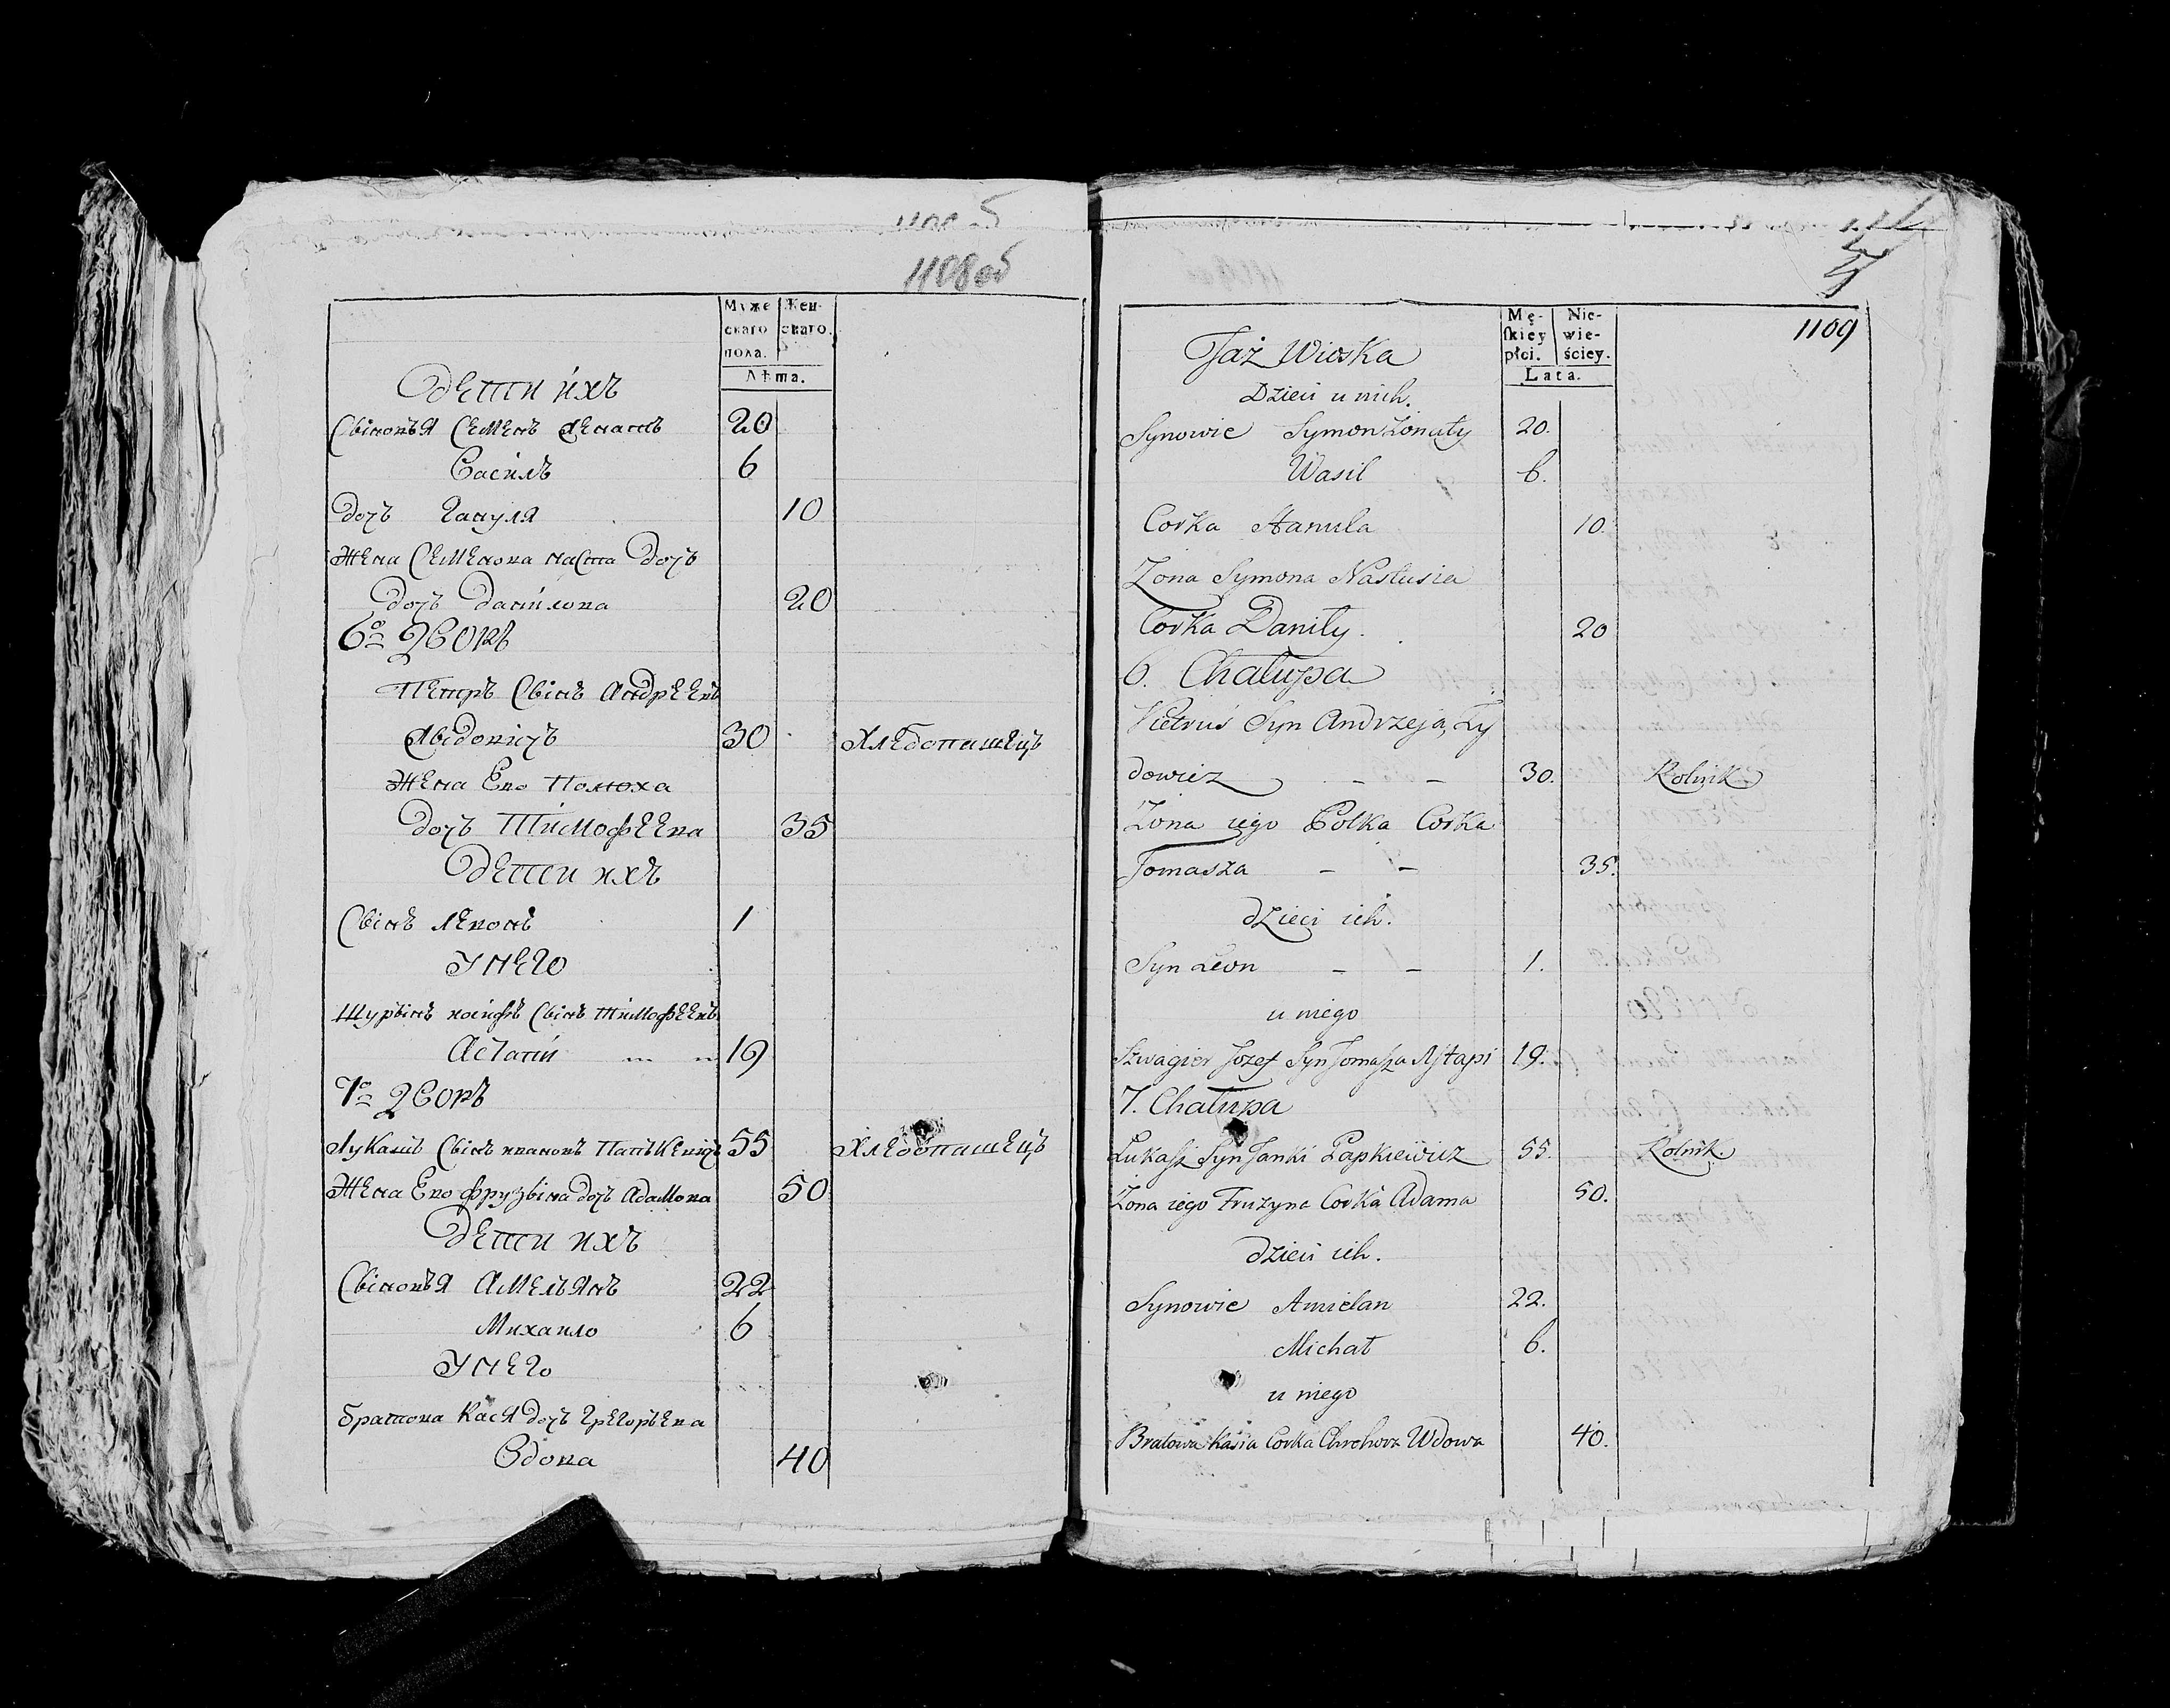 1108 об
Муже
скаго
пола.
Жен-
скаго.
Лѣта.
Дети ихъ
Свіновья Семенъ женатъ 20
Василь 6
Дочь Гануля 10
Жена Семенова настя Дочь
Дочь Данилова 20
6о Дворъ
Петръ Свінъ Андреевъ
30 Хлебопашецъ
Жена Ево Полюха
Дочь Тимофеева 35
Дети ихъ
Свінъ Левонъ 1
У него
Шурвінъ иосифъ Свінъ тимофеевъ
Астапи 19
7о Дворъ
Лукашъ Свінъ ивановъ Папъкевичъ 55 Хлебопашецъ
Жена Ево фрузвіна дочь Адамова 50
Дети ихъ
Свіновья Амельянъ 22
Михаило 6
У него
братова Кася дочь Грегорьева
Вдова 40
1109
Mę-
skiey
płci.
Nie-
wie-
ściey.
Lata.
Taż Wioska
Dzieci u nich.
Synowie Symon Żonaty 20.
Wasil 6.
Corka Hanula 10.
Żona Symona Nastusia
Corka Daniły. 20
6. Chałupa
Pietruś Syn Andrzeja, Ły
dowicz – – 30. Rolnik
Żona iego Połka Corka
Tomasza – – 35.
dzieci ich.
Syn Leon – – 1.
u niego
Szwagier Jozef Syn Tomasza Astapi 19.
7. Chałupa
Łukasz Syn Janki Papkiewicz 55. Rolnik.
Żona iego Fruzyna Corka Adama 50.
dzieci ich.
Synowie Amielan 22.
Michał 6.
u niego
Bratowa Kasia Corka Chrehora Wdowa 40.